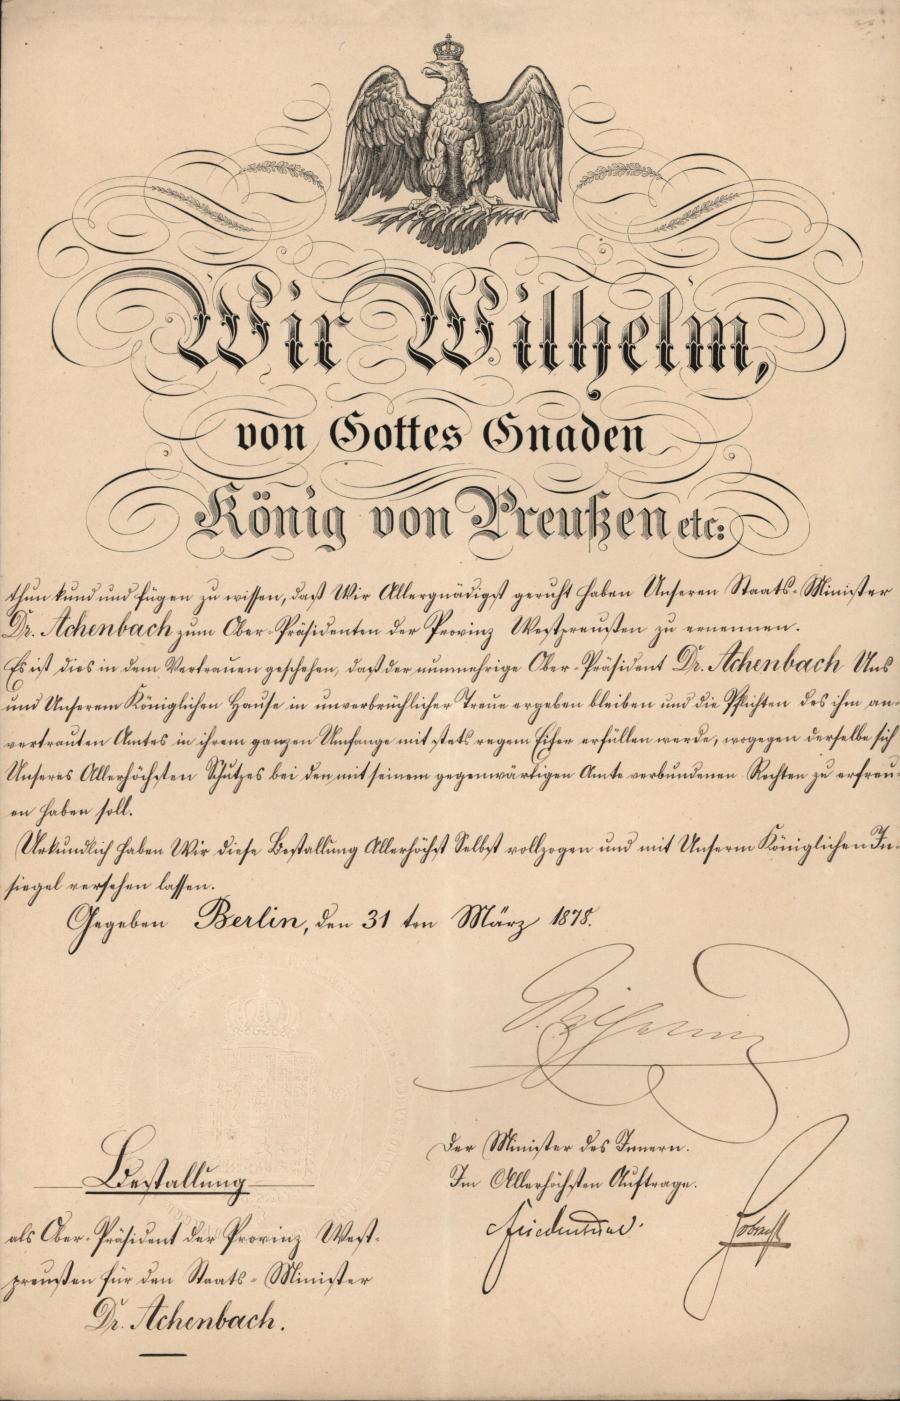 Wir Wilhelm,
von Gottes Gnaden
König von Preußen etc:
thun kund und fügen zu wissen, daß Wir Allergnädigst geruht haben Unseren Staats-Minister
Dr. Achenbach zum Ober-Präsidenten der Provinz Westpreußen zu ernennen.
Es ist dies in dem Vertrauen geschehen, daß der nunmehrige Ober-Präsident Dr. Achenbach Uns
und Unserem Königlichen Hause in unverbrüchlicher Treue ergeben bleiben und die Pflichten des ihm an-
vertrauten Amtes in ihrem ganzen Umfange mit stets regem Eifer erfüllen werde, wogegen derselbe sich
Unseres Allerhöchsten Schutzes bei den mit seinem gegenwärtigen Amte verbundenen Rechten zu erfreu-
en haben soll.
Urkundlich haben Wir diese Bestallung Allerhöchst Selbst vollzogen und mit Unserm Königlichen In-
siegel versehen lassen.
Gegeben Berlin, den 31 ten März 1878.
Wilhelm
Der Minister des Innern.
Im Allerhöchsten Auftrage.
Friedenthal.
Bestallung
als Ober-Präsident der Provinz West-
preußen für den Staats-Minister
Dr. Achenbach.